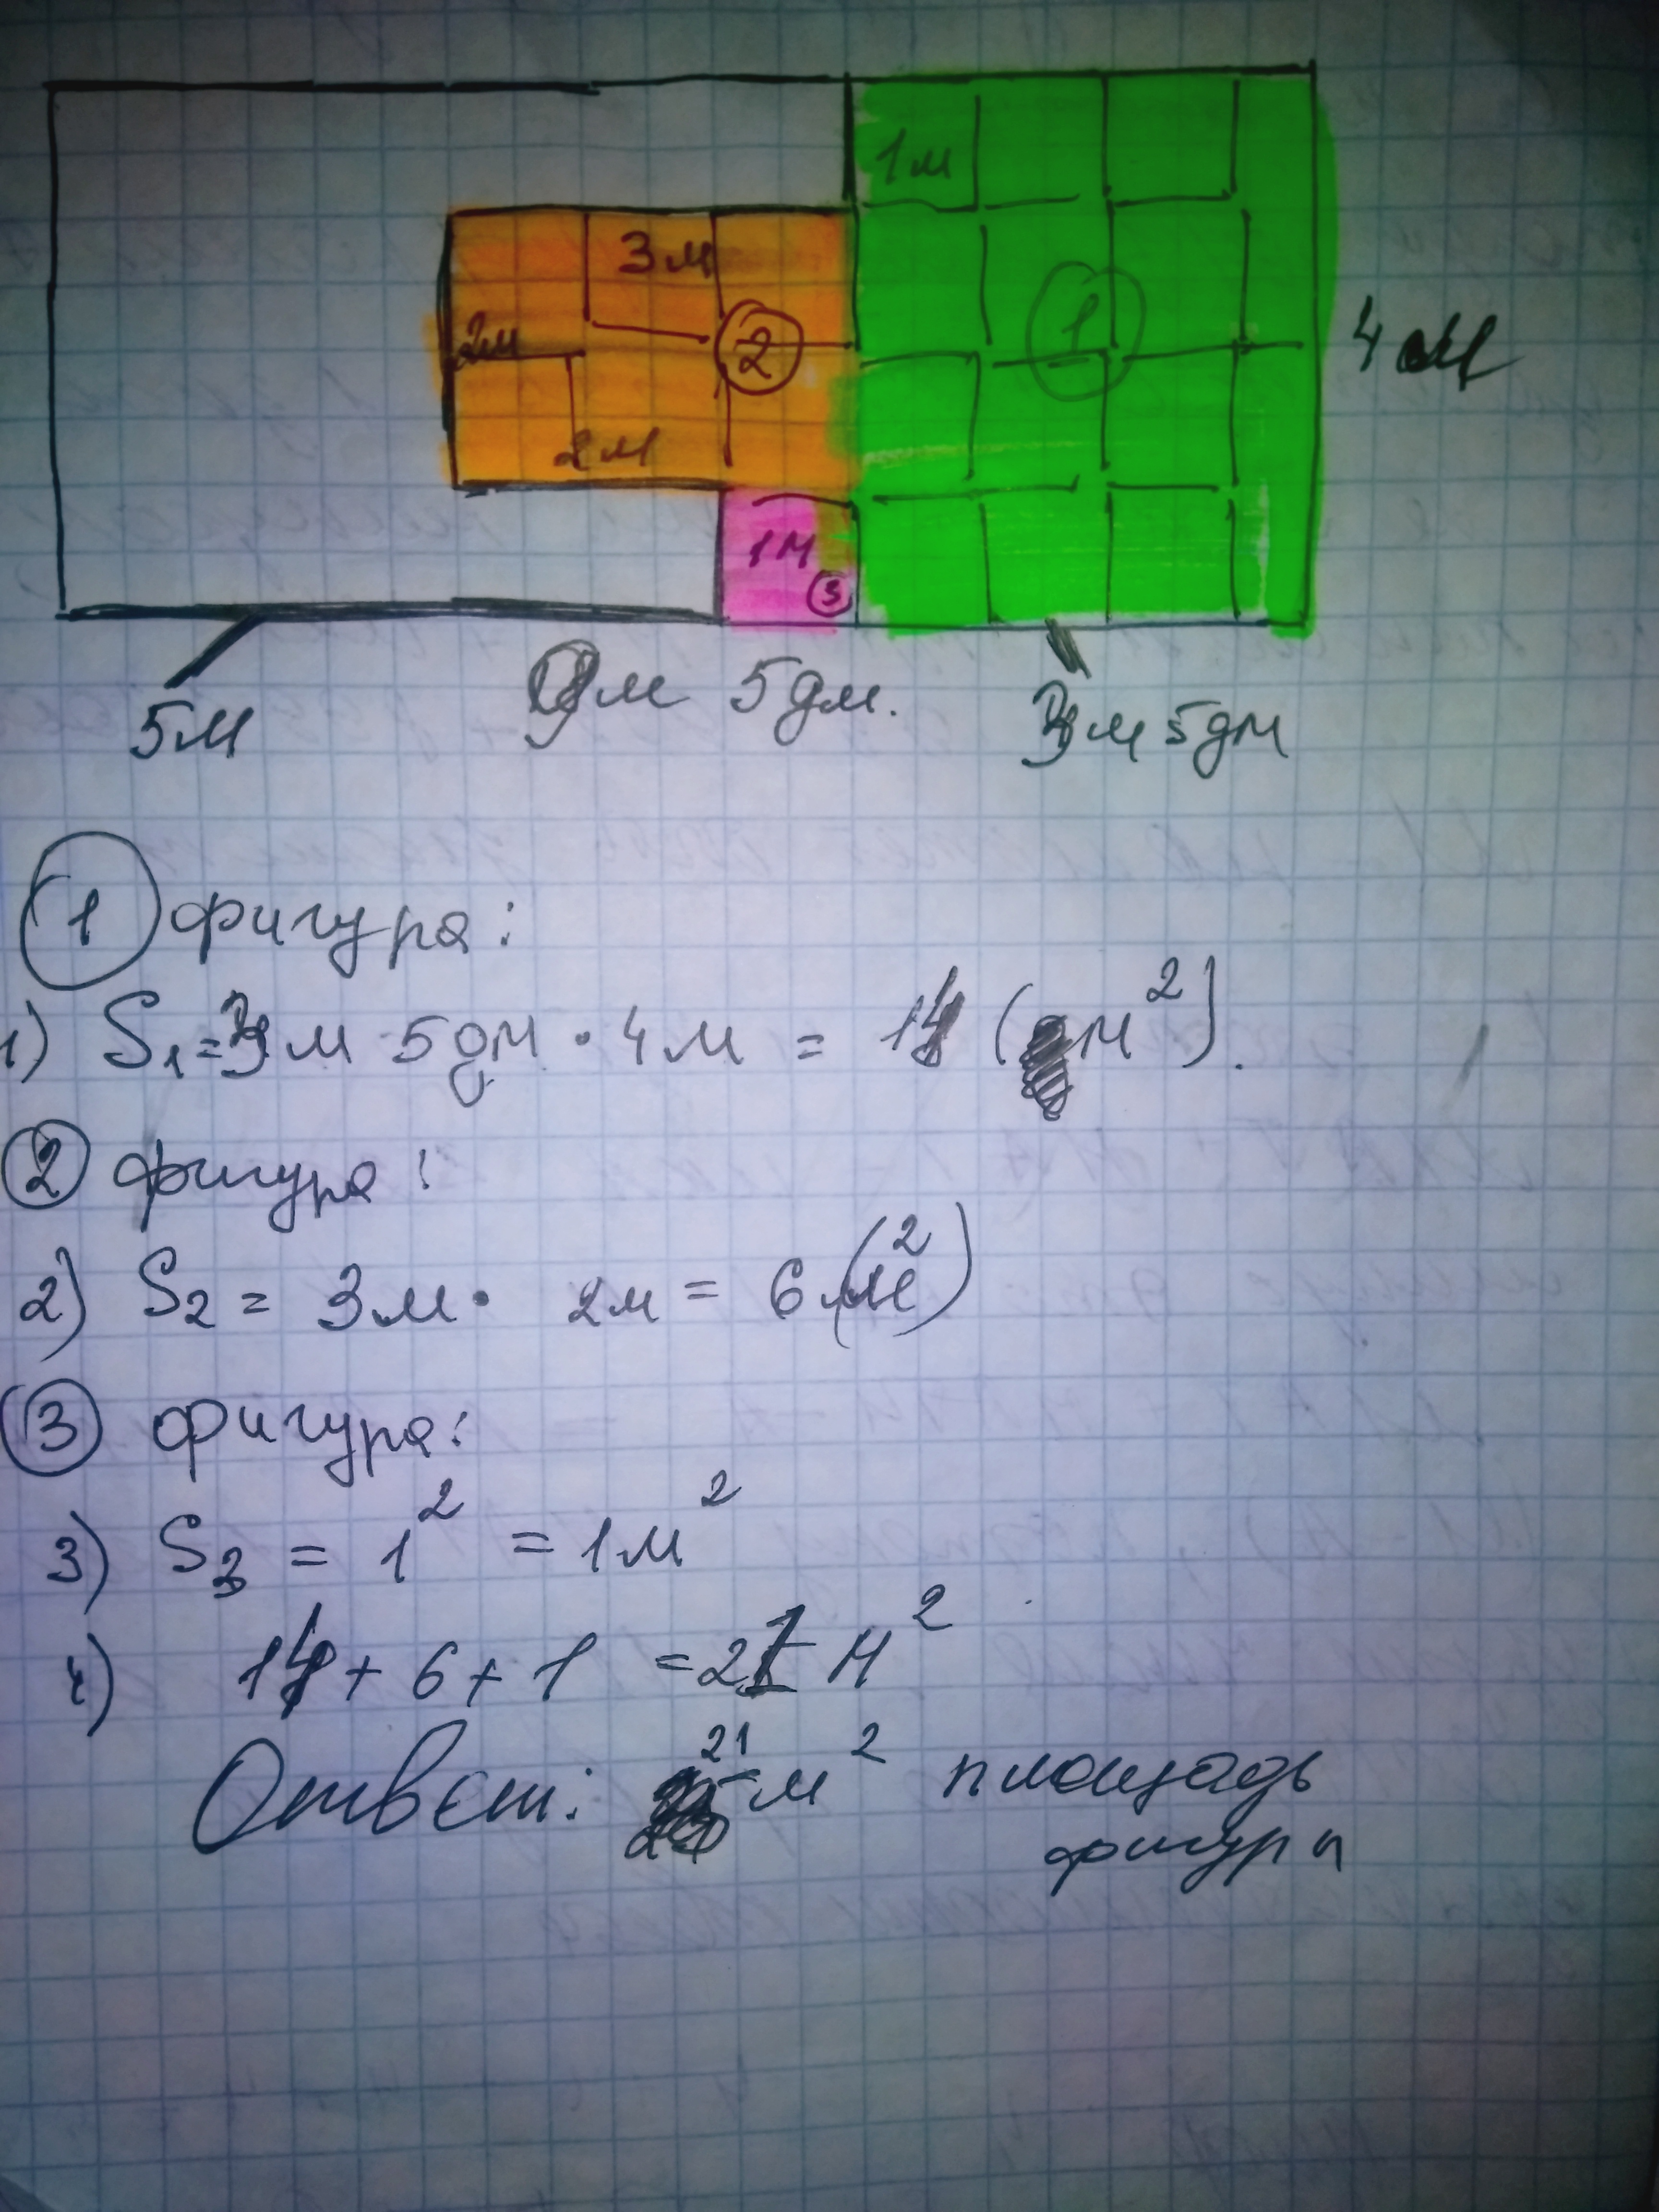 1м
3м
2м
2
1
4 м
2м
1м
3
5м
м 5дм.
3м 5дм
1 фигура:
1) S₁=3м 5дм · 4м = 14 (м²).
2 фигура:
2) S₂ = 3м · 2м = 6 (м²)
3 фигура:
3) S₃ = 1² = 1м²
4) 14 + 6 + 1 = 21 м²
Ответ: 21 м² площадь
фигуры